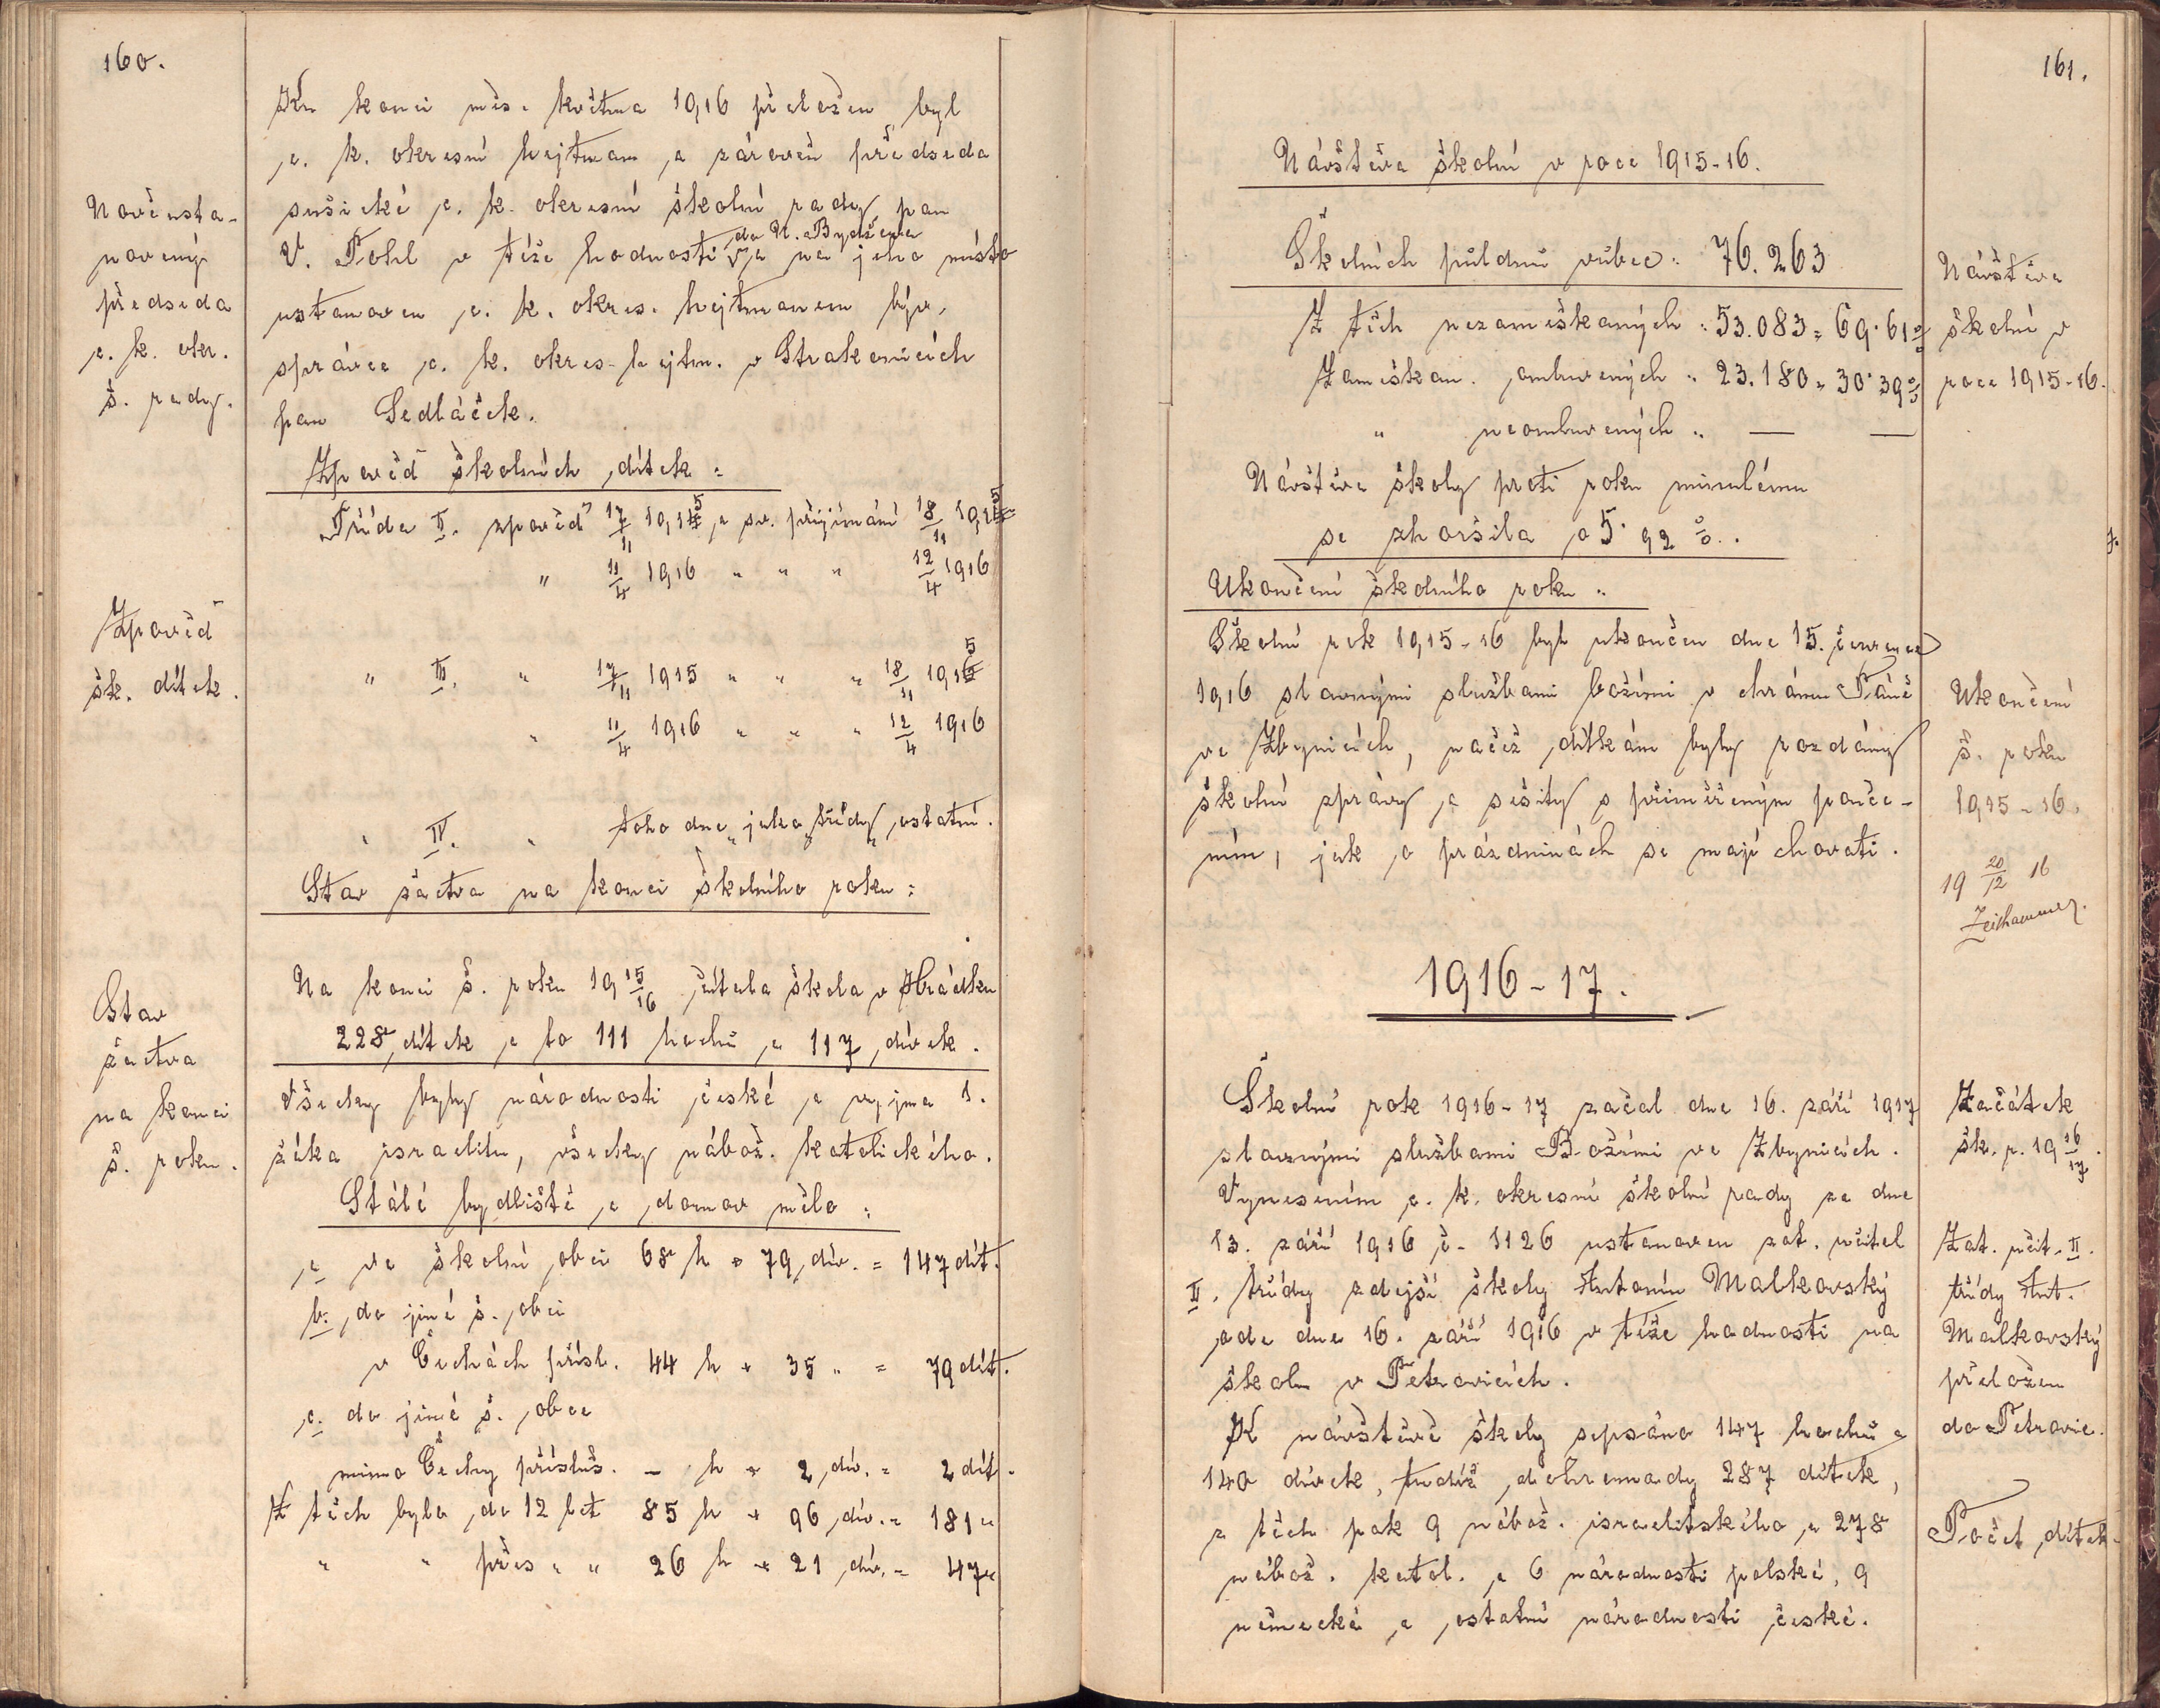 160.
Ku konci měs. května 1916 přeložen byl
c. k. okresní hejtman a zároveň předseda
sušické c. k. okresní školní rady pan
do N. Bydžova
V. Pohl v téže hodnosti a na jeho místo
ustanoven c. k. okres. hejtmanem býv.
správce c. k. okres. hejtm. v Strakonicích
pan Sedláček.
Novousta-
novený
předseda
c. k. okr.
š. rady.
Zpověď školních dítek:
Třída II. zpověď 17/11 1915 a sv. přijímání 18/11 1915
" 11/4 1916 " " " 12/4 1916
" III. " 17/11 1915 " " " 18/11 1915
" 11/4 1916 " " " 12/4 1916
" IV. " toho dne jako třídy ostatní.
Zpověď
šk. dítek.
Stav žactva na konci školního roku:
Na konci š. roku 19 15/16 čítala škola v Hrádku
228 dítek a to 111 hochů a 117 dívek.
Všecky byly národnosti české a vyjma 1.
žáka israelitu, všecky nábož. katolického.
Stav
žactva
na konci
š. roku.
Stálé bydliště a domov mělo:
a ve školní obci 68 h + 79 dív. = 147 dít.
b. do jiné š. obci
v Čechách přísl. 44 h + 35 " = 79 dít.
c. do jiné š. obce
mimo Čechy přísluš. - h + 2 dív. = 2 dít.
Z těch bylo do 12 let 85 h + 96 dív. = 181 "
" " přes " " 26 h + 21 dív. = 47 "
161.
Návštěva školní v roce 1915-16.
Školních půldnů vůbec: 76.263
Z těch nezameškaných: 53.083 = 69.61 %
Zameškan. omluvených " 23.180 = 30.39 %
" neomluvených " — —
Návštěva školy proti roku minulému
se zhoršila o 5.92 %.
Návštěva
školní v
roce 1915-16.
Ukončení školního roku:
Školní rok 1915-16 byl ukončen dne 15. července
1916 slavnými službami božími v chrámu Páně
ve Zbynicích, načež dítkám byly rozdány
školní zprávy a sešity s přiměřeným pouče-
ním, jak o prázdninách se mají chovati.
Ukončení
š. roku
1915-16.
19 20/12 16
Zeithammer.
1916-17.
Školní rok 1916-17 začal dne 16. září 1917
slavnými službami Božími ve Zbynicích.
Vynesením c. k. okresní školní rady ze dne
13. září 1916 č. 1126 ustanoven zat. učitel
II. třídy zdejší školy Antonín Malkovský
ode dne 16. září 1916 v téže hodnosti na
školu v Petrovicích.
K návštěvě školy sepsáno 147 hochů a
140 dívek, tudíž dohromady 287 dítek,
z těch pak 9 nábož. israelitského a 278
nábož. katol. a 6 národnosti polské, 9
německé a ostatní národnosti české.
Začátek
šk. r. 19 16/17.
Zat. učit. II.
třídy Ant.
Malkovský
přeložen
do Petrovic.
Počet dítek.